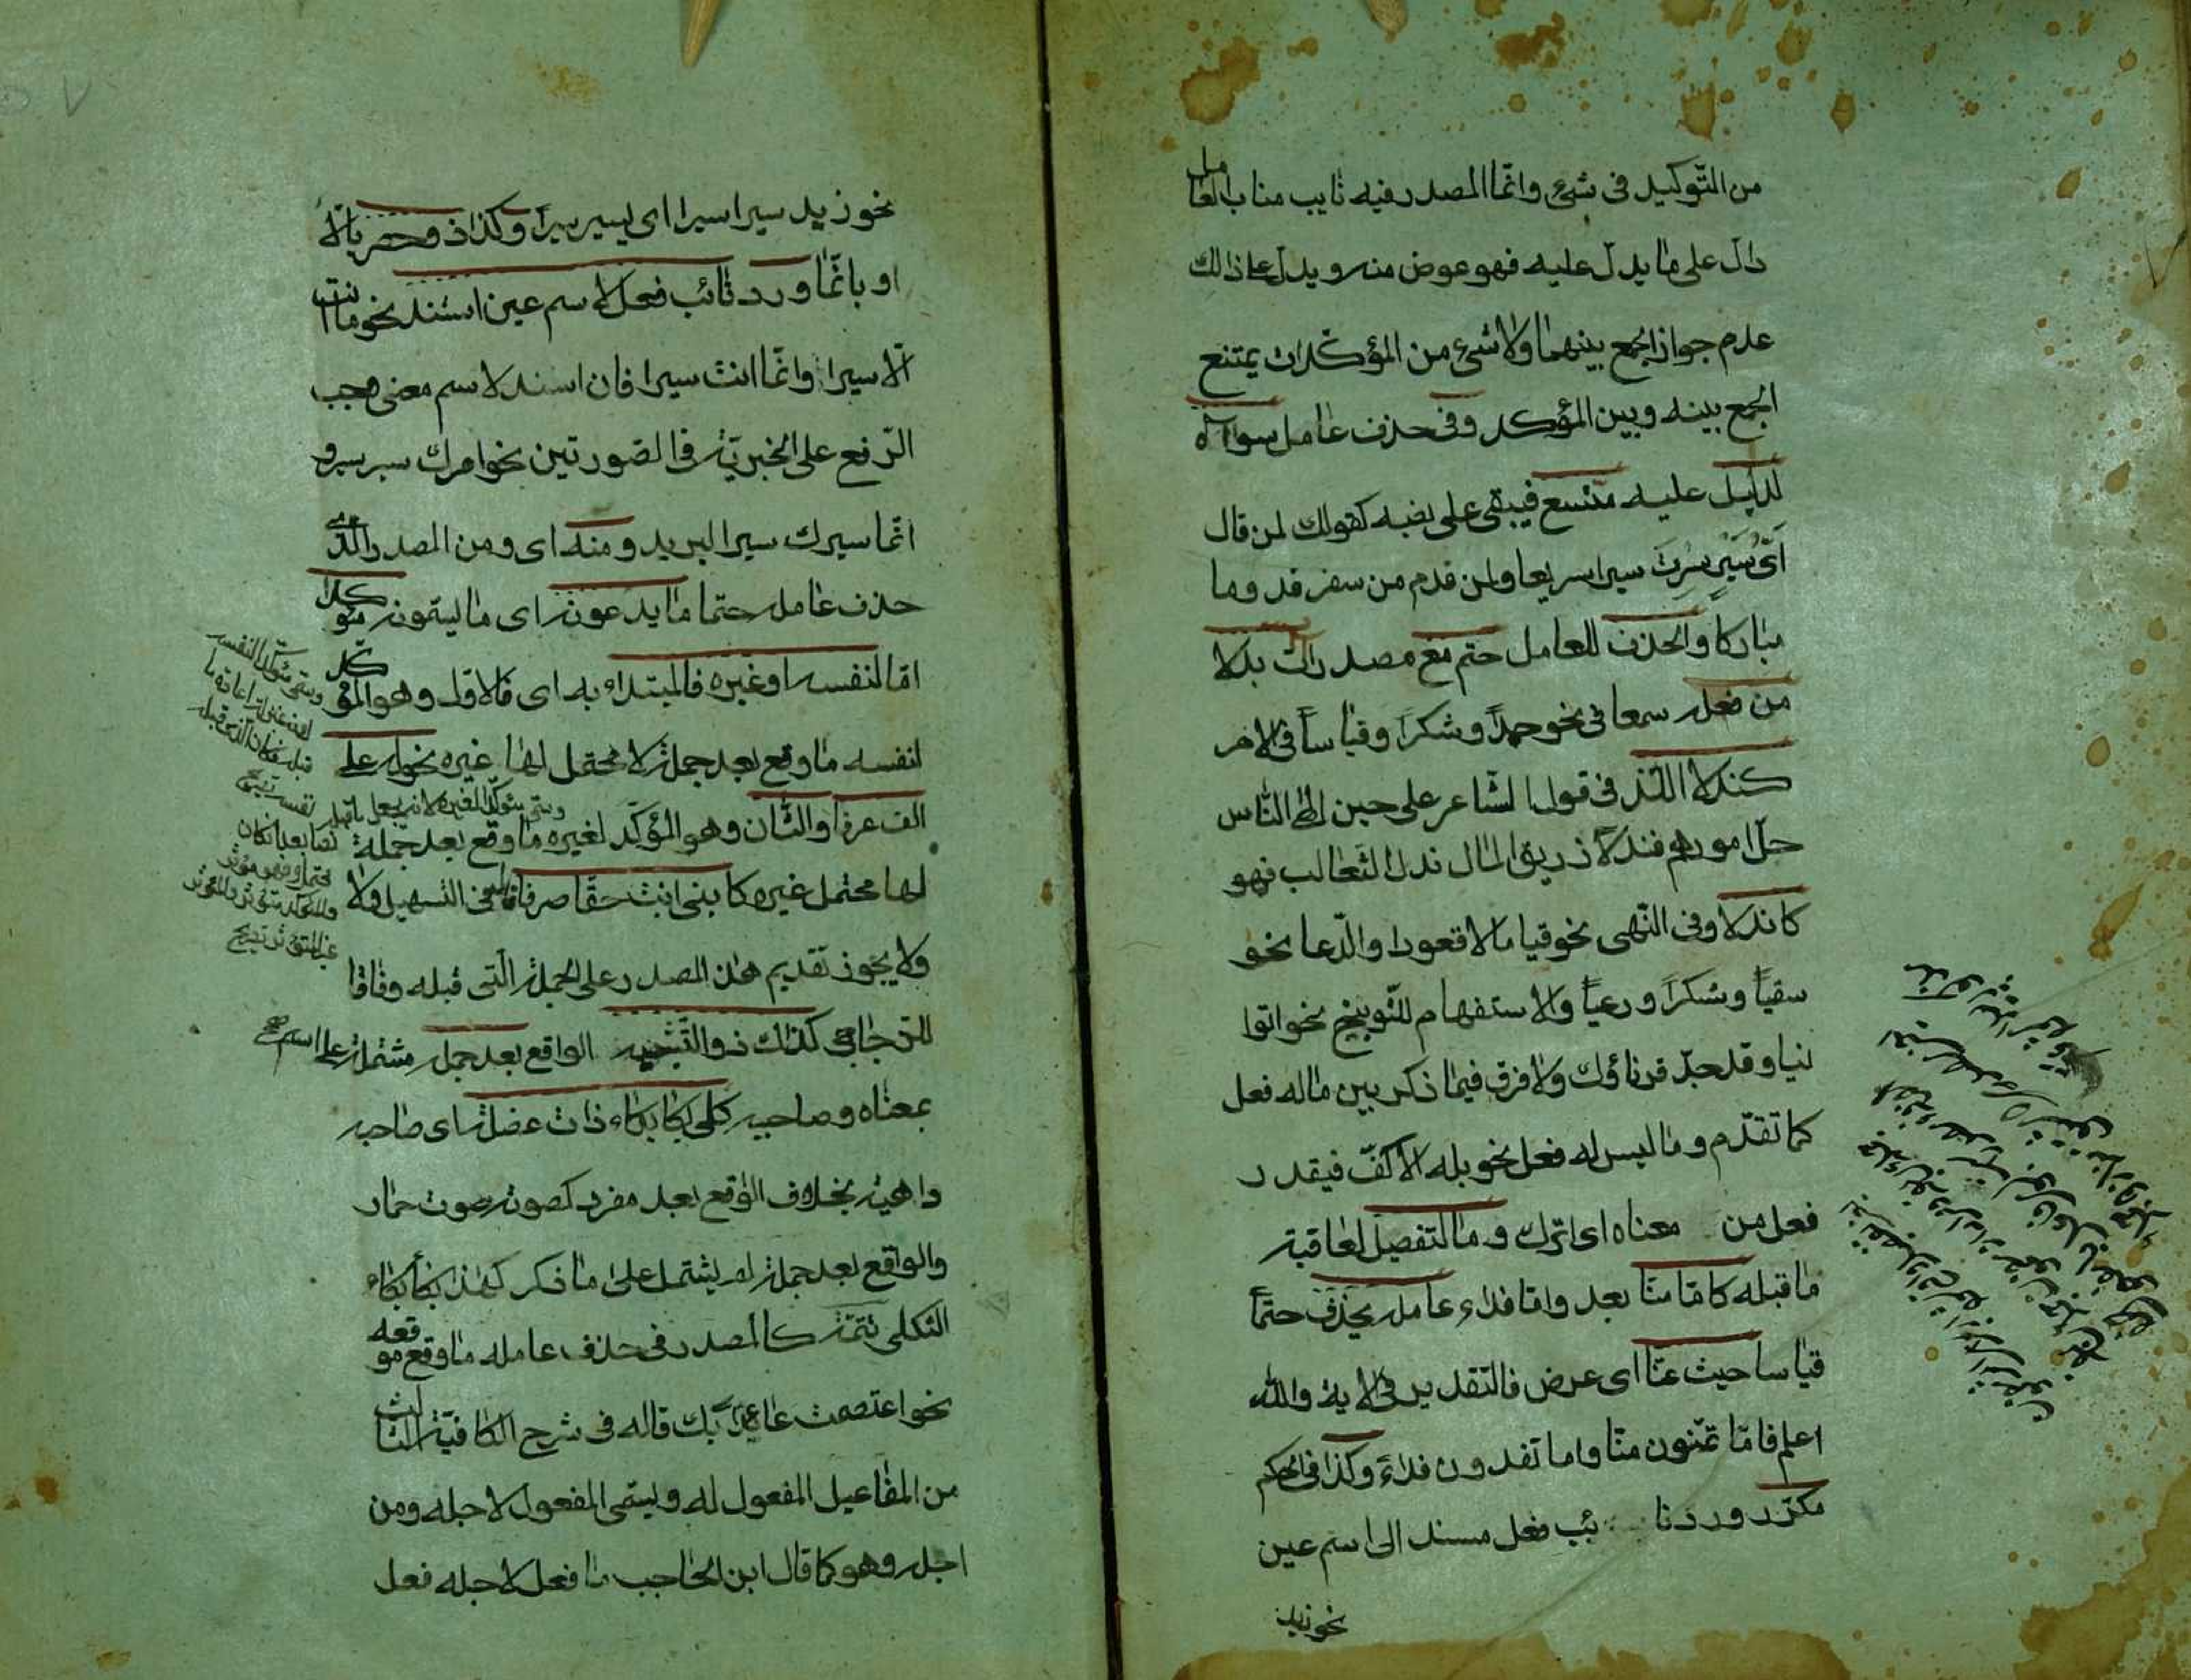 من التّوكيد فى شىء وانّما المصدر فيه نايب مناب العامل
دال على ما يدل عليه فهو عوض منه ويدل على ذلك
عدم جواز الجمع بينهما ولا شىء من المؤكّدات يمتنع
الجمع بينه وبين المؤكد وفى حذف عامل سواه
لدليل عليه متسع فيبقى على نصبه كقولك لمن قال
اَىَّ سَيْرٍ سِرْتَ سيرا سريعا ولمن قدم من سفر قدوما
مباركا والحذف للعامل حتم مع مصدر اٰت بدلا
من فعله سمعا فى نحو حمداً وشكراً وقياساً فى الامر
كندلا اللّذ فى قول الشّاعر على حين الهى النّاس
جلّ امورهم فندلاً زريق المال ندل الثعالب فهو
كاندلا وفى النّهى نحو قياما لا قعودا والدّعا نحو
سقياً وشكراً ورعياً والاستفهام للتّوبيخ نحو اتوا
نيا وقد جدّ قرناؤك ولا فرق فيما ذكر بين ماله فعل
كما تقدّم وما ليس له فعل نحو بله الاكفّ فيقدر
فعل من معناه اى اترك وما لتفصيل لعاقبة
ما قبله كامّا منّا بعد وامّا فداء عامله يحذف حتماً
قياسا حيث عنّا اى عرض فالتّقدير فى الاية والله
اعلم فامّا تمنّون منّا واما تفدون فداءً وكذا فى الحكم
مكرّر ورد نا ئب فعل مسند الى اسم عين
نحو زيد
نحو زيد سيرا سيرا اى يسير سيراً وكذا ذو حصر بالّا
او بانّما ورد نائب فعل لاسم عين استند نحو ما انت
الّا سيرا وانّما انت سيرا فان اسند لاسم معنى وجب
الرّفع على الخبريّة فى الصّورتين نحو امرك سير سير و
انّما سيرك سير البريد ومنه اى ومن المصدر الّذى
حذف عامله حتما ما يدعونه اى ما يسمّونه مؤكدا
امّا لنفسه او غيره فالمبتداء به اى فالاوّل وهو المؤكّد
لنفسه ما وقع بعد جملة لا محتمل لها غيره نحو له علىّ
الف عرفا والثّان وهو المؤكّد لغيره ما وقع بعد جملة
لها محتمل غيره كابنى انت حقّا صرفا قال فى التسهيل ولا
ولا يجوز تقديم هذا المصدر على الجملة الّتى قبله وفاقا
للزّجّاجى كذاك ذو التّشبيه الواقع بعد جملة مشتملة على اسم صح
بمعناه وصاحبه كلى بكا بكاء ذات عضلة اى صاحبة
داهية بخلاف الواقع بعد مفرد كصوته صوت حمار
والواقع بعد جملة لم يشتمل على ما ذكر كهذا بكأ بكاء
الثكلى تتمّة كالمصدر فى حذف عامله ما وقع موقعه
نحو اعتصمت عائذا بك قاله فى شرح الكافيّة الثالث
من المفاعيل المفعول له ويسمّى المفعول لاجله ومن
اجله وهو كما قال ابن الحاجب ما فعل لاجله فعل